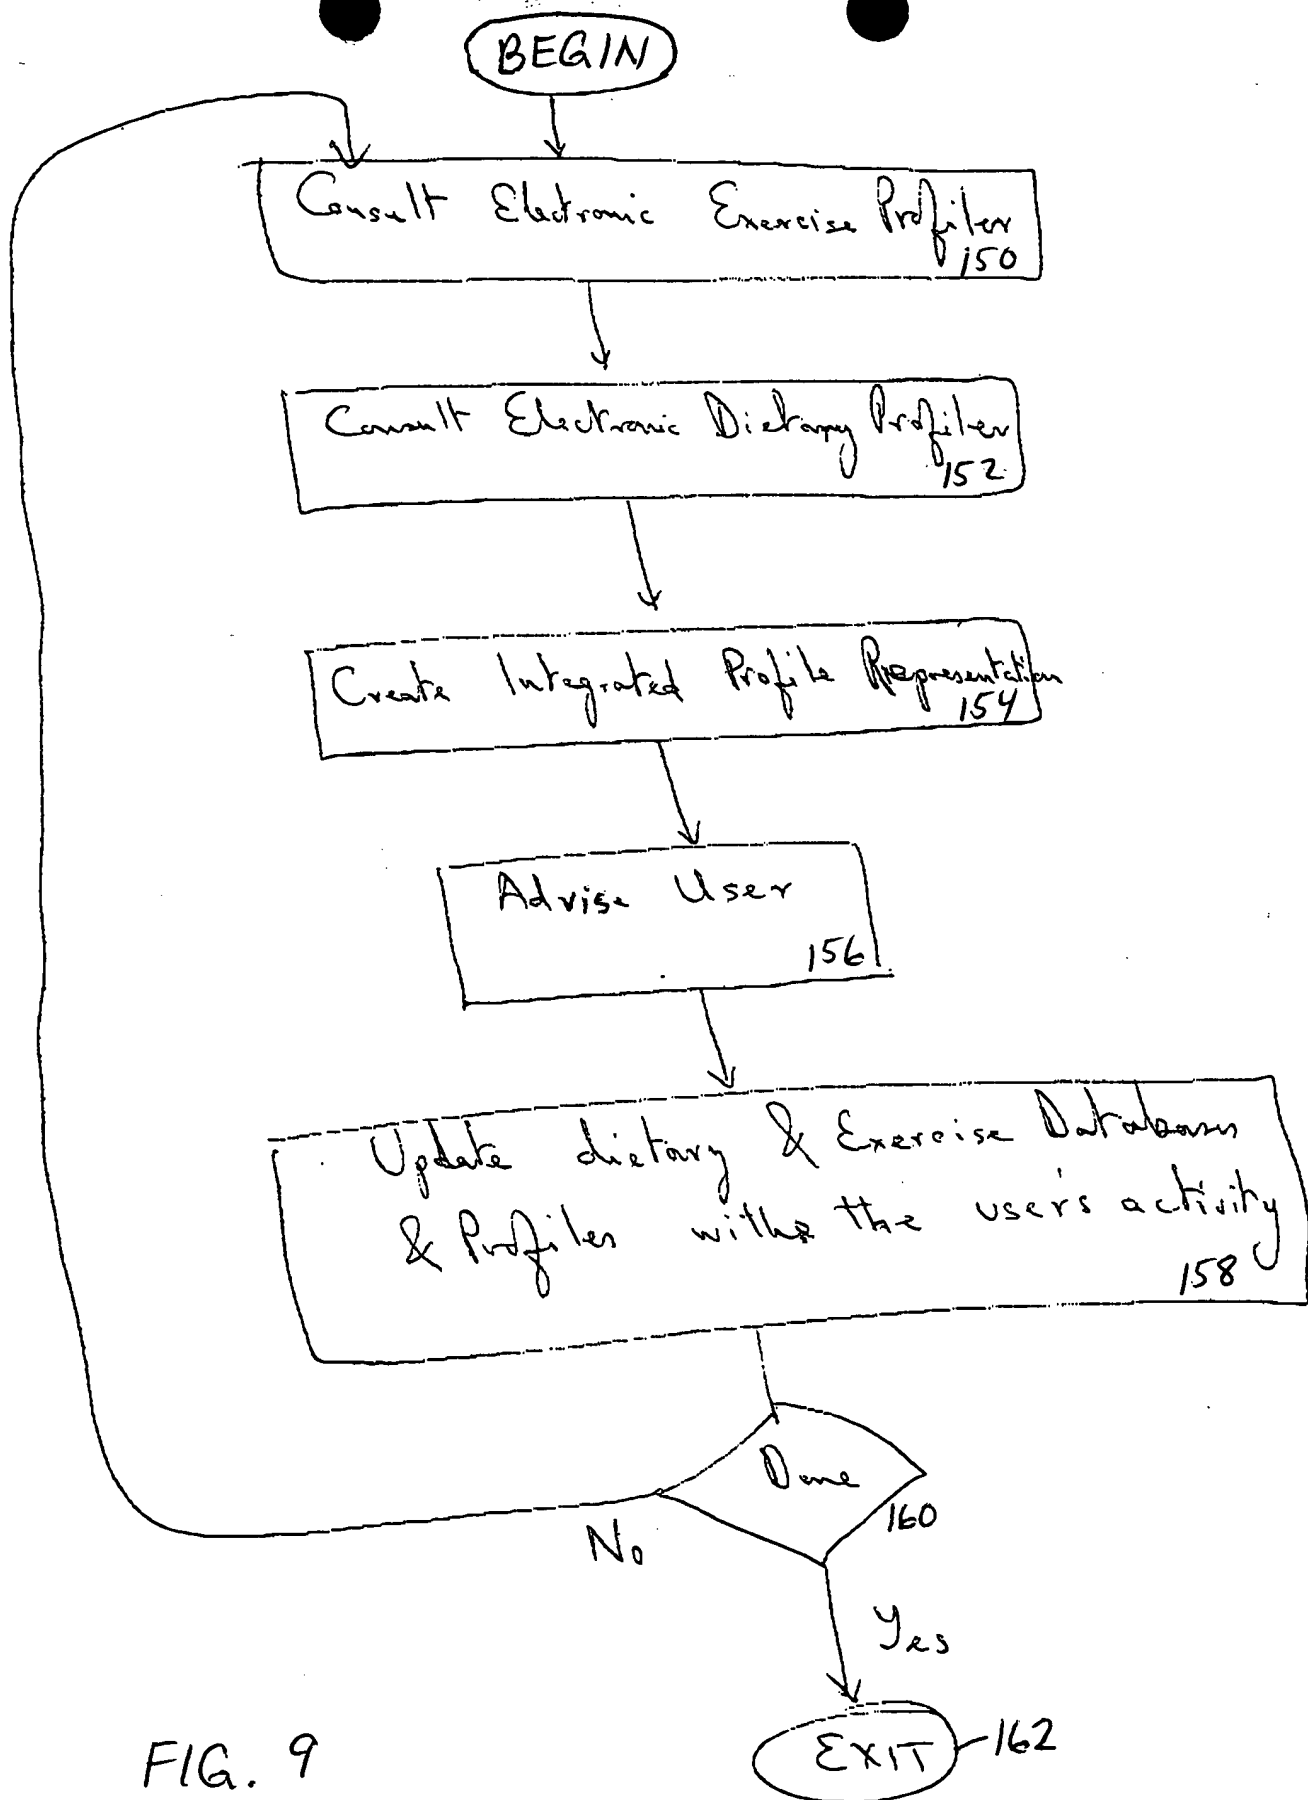 BEGIN
Consult Electronic Exercise Profiler
150
Consult Electronic Dietary Profiler
152
Create Integrated Profile Representation
154
Advise User
156
Update dietary & Exercise Databases
& Profiles with the user's activity
158
Done
160
No
Yes
EXIT
162
FIG. 9